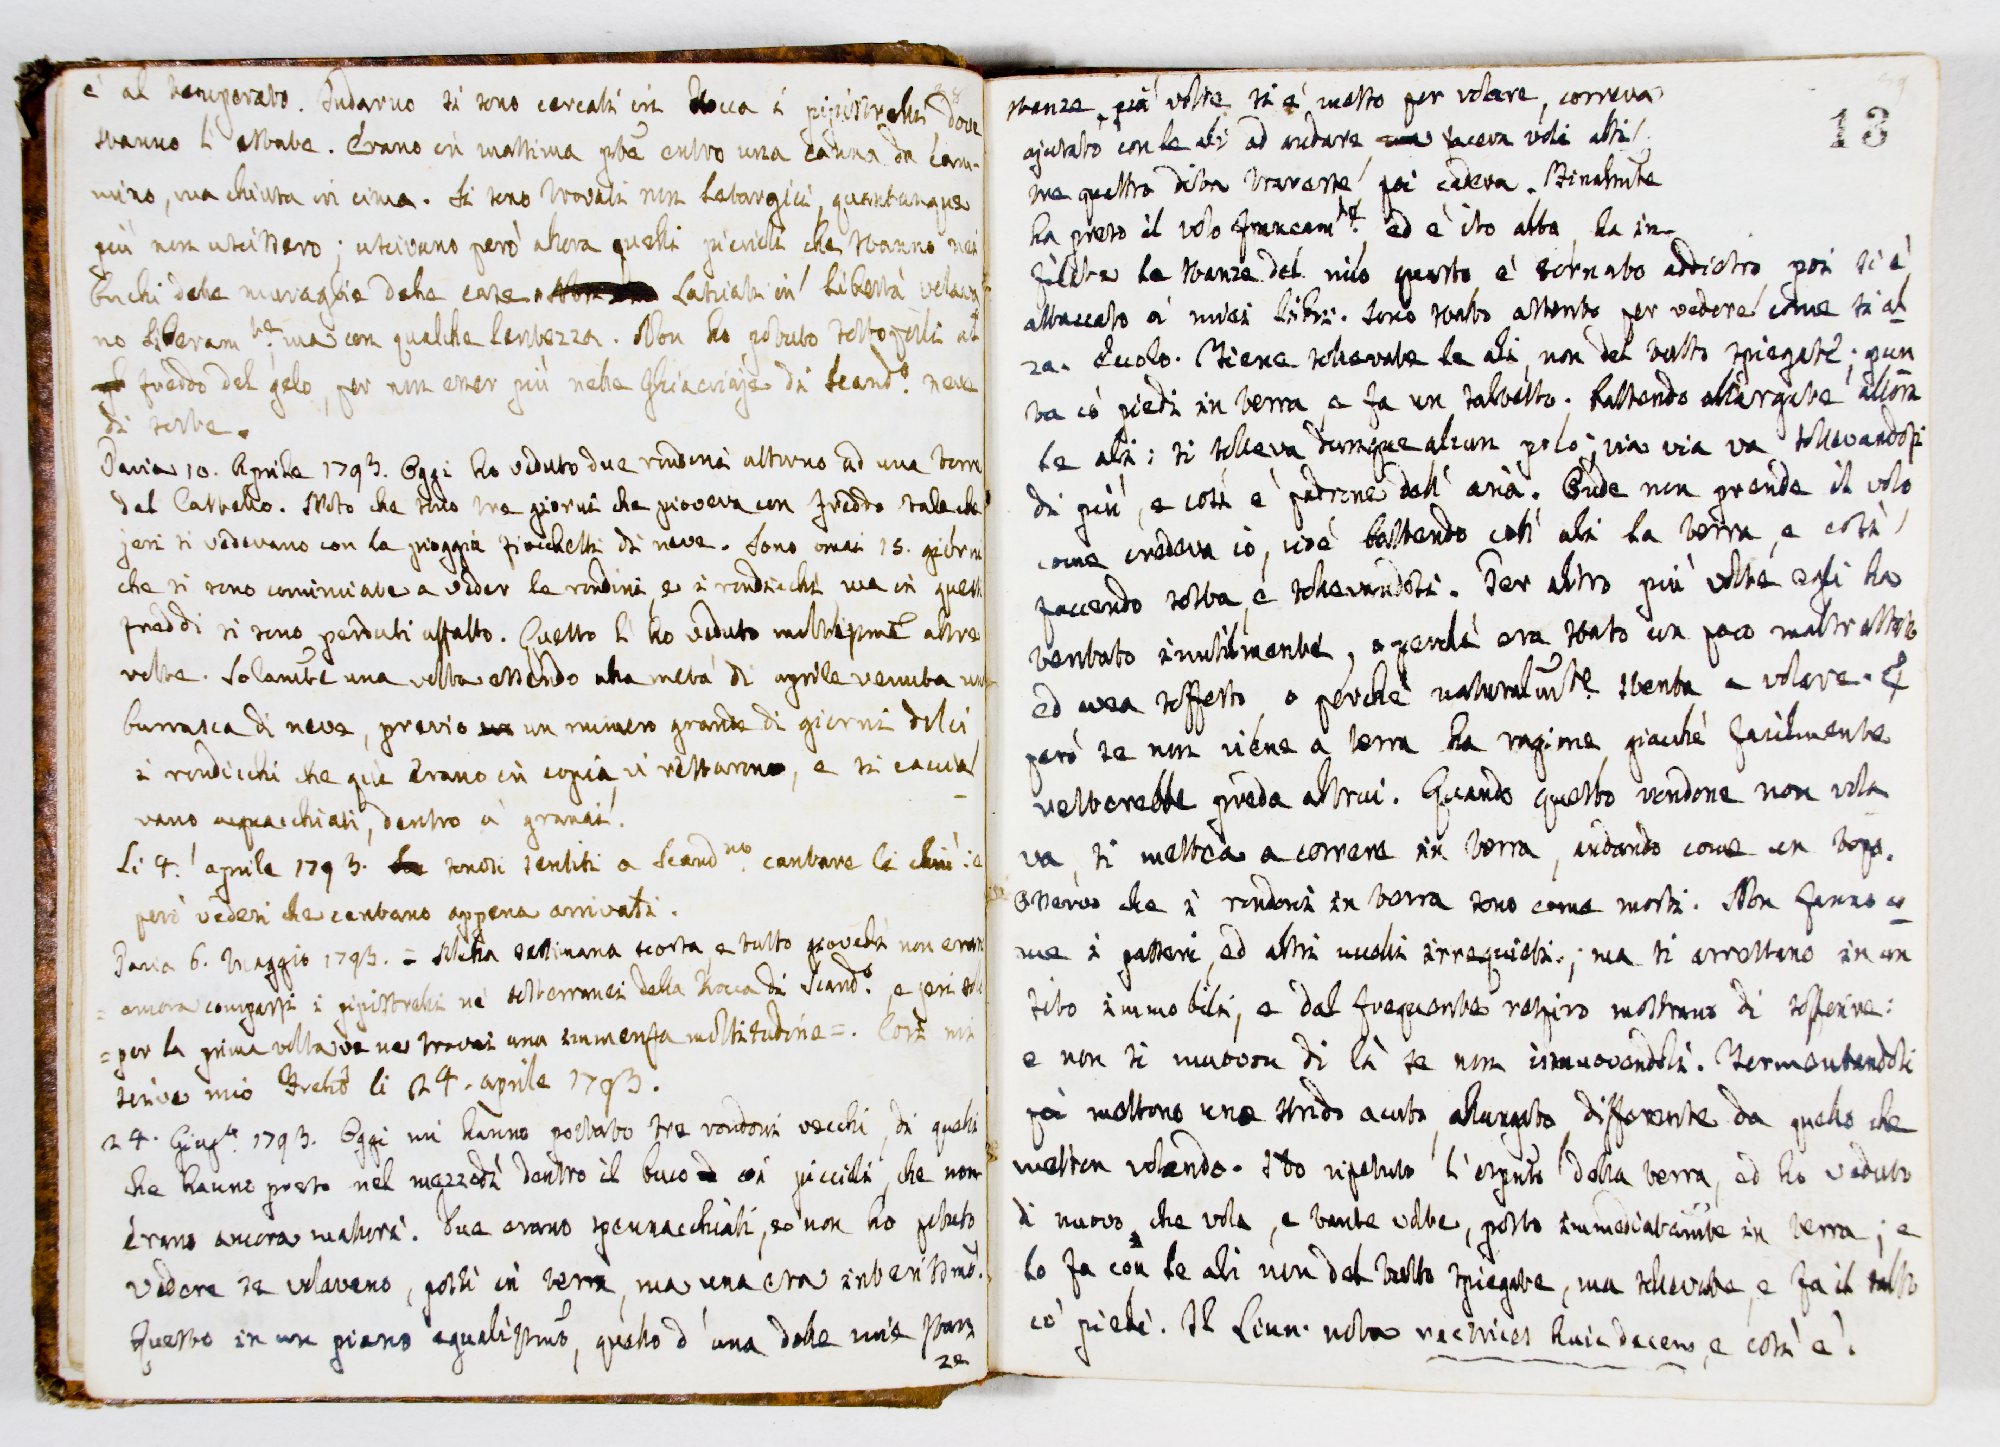 e al temporato. Indarno si sono cercati in Rocca i pipistrelli dove
stanno l'estate. Erano in mattina entro una canna da cam-
mino, ma chiusa in cima. Si sono trovati non letargici, quantunque
più non uscissero; uscivano però allora quelli piccioli che stanno nei
buchi delle muraglie delle case. Lasciati in libertà volava
no liberam.te, ma con qualche lentezza. Non ho potuto sottoporli al
freddo del gelo, per non esser più nelle Ghiacciaje di Scand.o neve
di sorte.
Pavia 10. Aprile 1793. Oggi ho veduto due rondini attorno ad una torre
del Castello. Noto che sono tre giorni che pioveva con freddo tale che
jeri si vedevano con la pioggia fiocchetti di neve. Sono omai 15. giorni
che si sono cominciate a veder le rondini, e i rondicchi ma in questi
freddi si sono perduti affatto. Questo l'ho veduto altre
volte. Solam̃te una volta essendo alla metà di aprile venuta una
burrasca di neve, previo un numero grande di giorni dolci
i rondicchi che già erano in copia, vi restarono, e si caccia
vano dentro a' granai.
Li 4. aprile 1793. sonosi sentiti a Scand.no cantare li chiù: e
però vedesi che cantano appena arrivati.
Pavia 6. Maggio 1793. = Nella settimana scorsa, e tutto giovedì non erano
= ancora comparsi i pipistrelli ne' sotterranei della Rocca di Scand.o, e jeri sol
= per la prima volta ve ne trovai una immensa moltitudine =. Così mi
scrive mio Fratello li 24. aprile 1793.
24. Giug.o 1793. Oggi mi hanno portato tre rondoni vecchi, di quelli
che hanno preso nel mezzodì dentro il buco coi piccioli, che non
erano ancora maturi. Due erano spennacchiati, e non ho potuto
vedere se volavano, posti in terra, ma una era interissimo.
Questo in un piano egualissimo, quello d'una delle mie stan
ze
stanze, più volte si è messo per volare, correva
ajutato con le ali ad andare faceva voli alti
tre quattro dita traverse poi cadeva. Finalm̃te
ha preso il volo francam.te, ed è ito alto, ha in-
filate le stanze del mio quarto è tornato addietro, poi si è
attaccato a' miei libri. Sono stato attento per vedere come si al
za. Eccolo. Tiene sollevate le ali, non del tutto spiegate; pun
ta co' piedi in terra e fa un saltetto, battendo allargate allora
le ali: si solleva dunque alcun poco; via via va sollevandosi
di più, e così è padrone dell'aria. Onde non prende il volo
come credeva io, cioè battendo coll'ali la terra, e così
facendo salto, e sollevandosi. Per altro più volte egli ha
tentato inutilmente, o perché era stato un poco maltrattato
ed avea sofferto, o perché naturalm̃te stenta a volare. E
però se non viene a terra ha ragione, giacché facilmente
resterebbe preda altrui. Quando questo rondone non vola
va, si mettea a correre in terra, andando come un topo.
Osservo che i rondoni in terra sono come morti. Non fanno co
me i passeri, ed altri uccelli irrequieti; ma si arrestano in un
sito immobili, e dal frequente respiro mostrano di soffrire:
e non si muovon di là se non ismuovendoli. Tormentandoli
poi mettono uno strido acuto, allungato, differente da quello che
metton volando. Ho ripetuto l'esper.to della terra, ed ho veduto
di nuovo che vola, e tante volte, posto immediatam̃te in terra; e
lo fa con le ali non del tutto spiegate, ma sollevate, e fa il salto
co' piedi. Il Linn. nota rectrices huic decem, e così è.
13